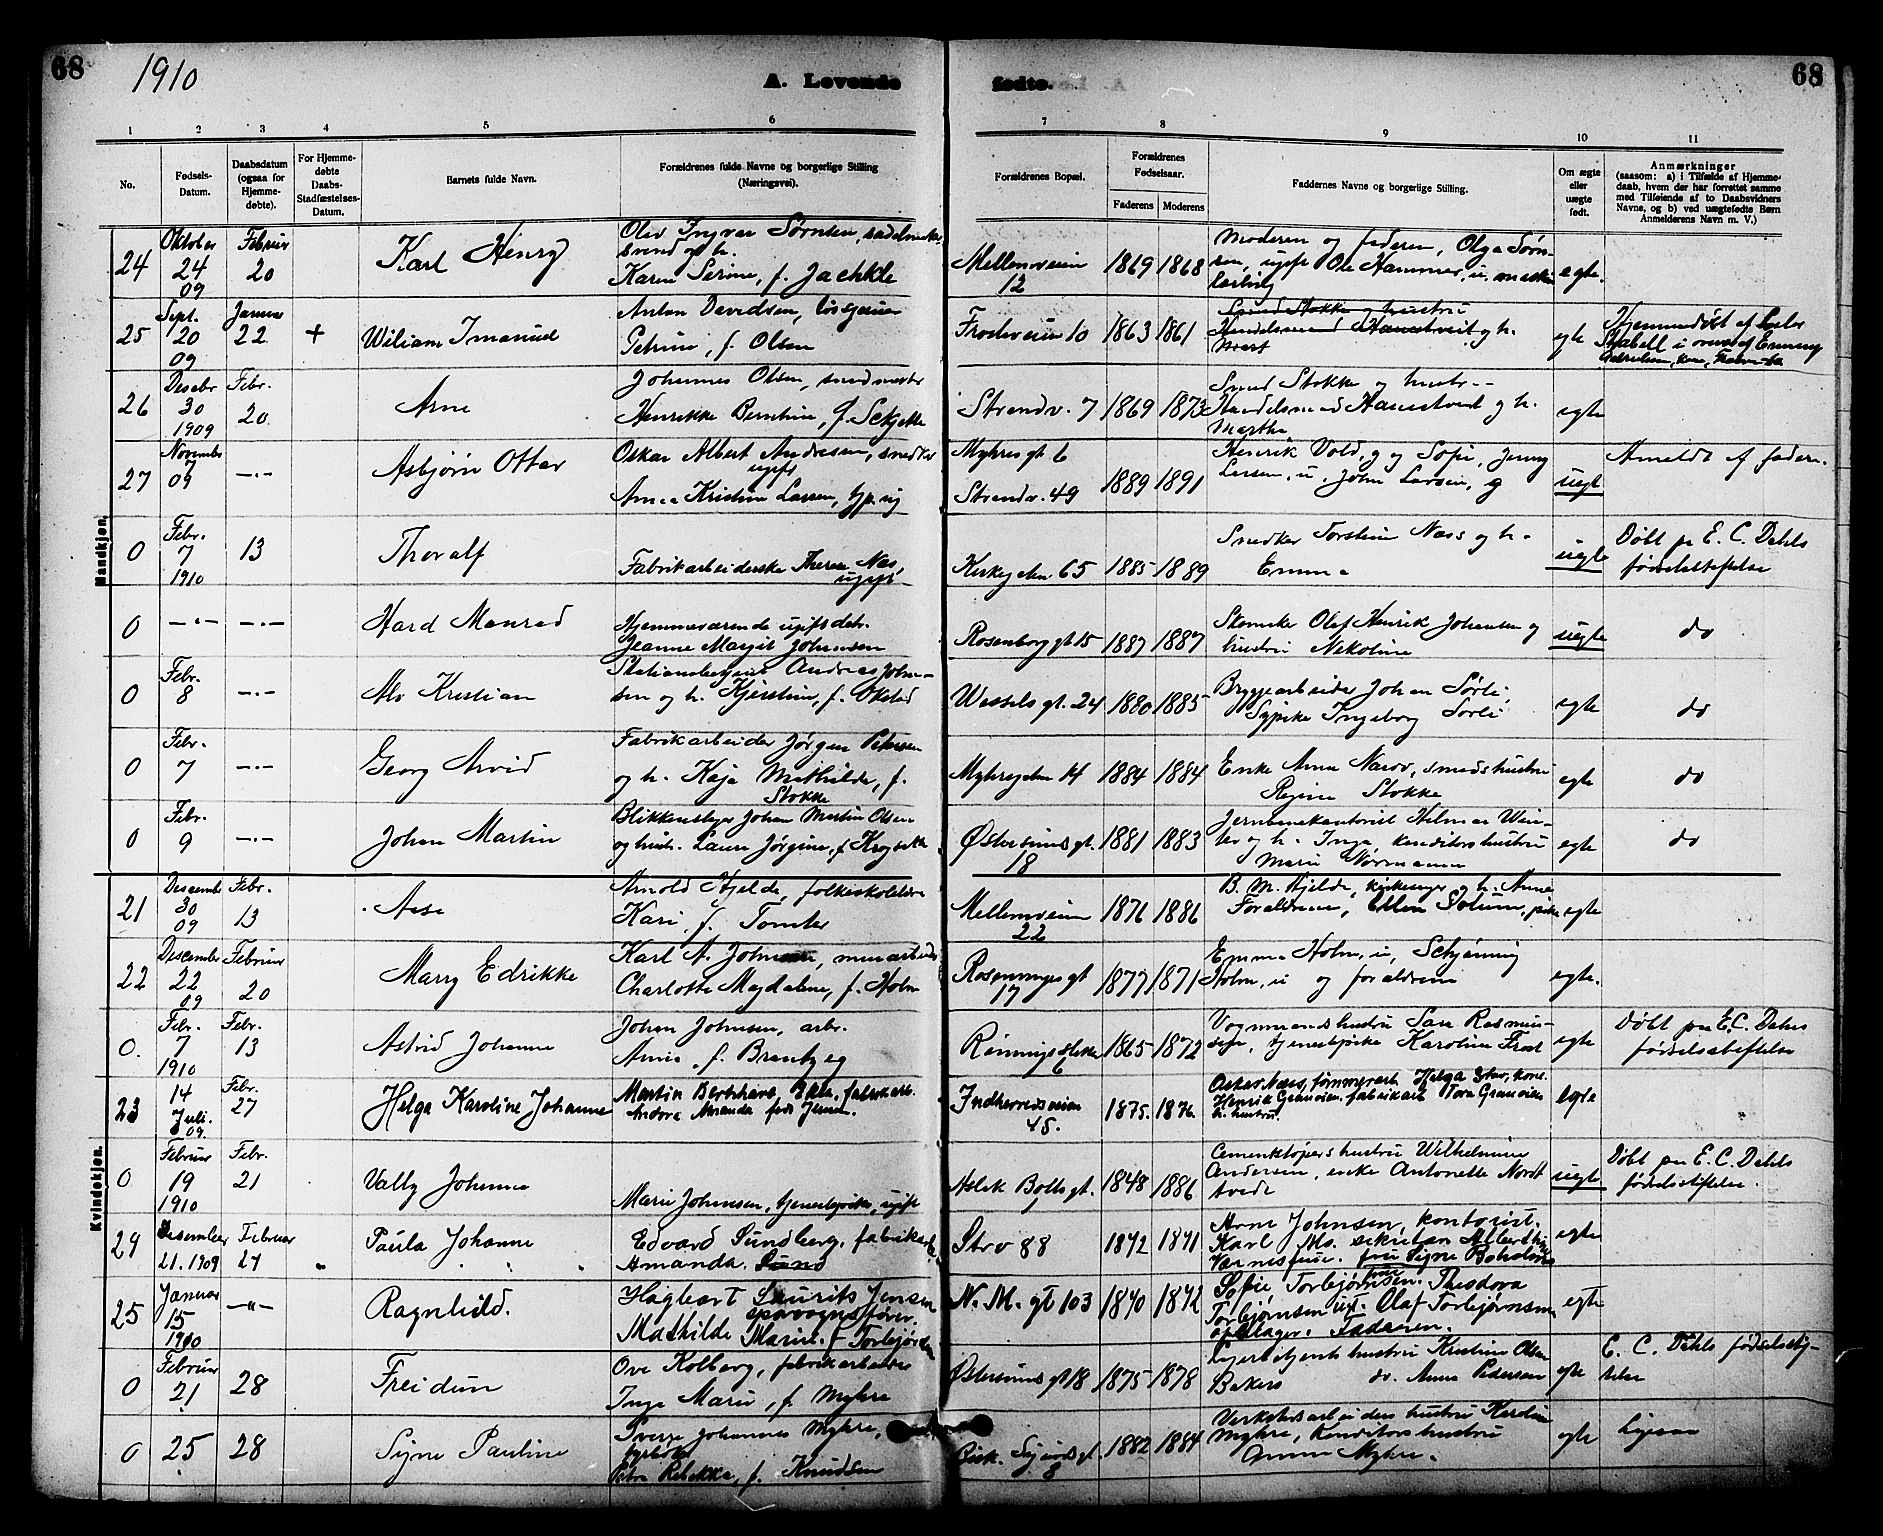 68
1910
A. Levende
fødte.
68
1 2 3 4 5 6 7 8 9 10 11
No.
Fødsels-Datum.
Daabsdatum (ogsaa for Hjemme-døbte).
For Hjemme-døbte Daabs-Stadfæstelses-Datum.
Barnets fulde Navn.
Forældrenes fulde Navne og borgerlige Stilling (Næringsvei).
Forældrenes Bopæl.
Forældrenes Fødselsaar.
Faderens Moderens
Faddernes Navne og borgerlige Stilling.
Om ægte eller uægte født.
Anmærkninger
(saasom: a) i Tilfælde af Hjemme-daab, hvem der har forrettet samme med Tilføiende af to Daabsvidners Navne, og b) ved uægtefødte Børn Anmelderens Navn m. V.)
Mandkjøn.
24 Oktober 24 09 Februar 20 Karl Henry
Olav Ingvar Sørnsen, sadelmaker
svend og h.
Karen Serine, f. Jachkle
Mellemveien 12 1869 1868
Moderen og faderen, Olga Sørn-
sen, ugift Ole Hammer, u.
egte.
25 Sept. 20 09 Januar 22 + Wiliam Imanuel
Anton Davidsen,
Petrine, f. Olsen
Frostaveien 10 1863 1861
Smed Stokke og hustru
Handelsmand Hanestveit og h.
Mart
egte
Hjemmedøbt af
26 Desebr 30 1909 Febr. 20 Arne
Johannes Olsen, smedmester
Henrikke Berntine, f. Sekjette
Strandv. 7 1869 1873
Smed Stokke og hustr.
Handelsmand Hanestveit og h.
Martha
egte
27 November 7 09 -"- Asbjørn Ottar
Oskar Albert Andresen, snedker
ugift
Anna Kristine Larsen,
Myhres gt 6
Strandv. 49 1889 1891
Henrik Vold, g og Sofie, Jenny
Larsen, u. John Larsen, g
uegt
Anmeldt af faderen.
0 Febr. 7 1910 13 Thoralf
Fabrikarbeiderske Therese Næs, ugift
Kirkegaten 65 1885 1889
Snedker Torstein Næss og h.
Emma
uegte
Døbt paa E. C. Dahls
fødselsstiftelse
0 -"- -"- Hard Monrad
Hjemmeværende ugift datr.
Jeanne Margit Johansen
Rosenborg gt 15 1887 1887
Skomaker Olaf Henrik Johansen og
hustru Nekoline
uegte do
0 Febr. 8 -"- Alv Kristian
Stationsbetjent Andreas Johan-
sen og h. Kjerstine, f. Okstad
Wessels gt. 24 1880 1885
Bryggearbeider Johan Sørli
Sypike Ingeborg Sørli
egte do
0 Febr. 7 -"- Georg Arvid
Fabrikarbeider Jørgen Petersen
og h. Kaja Mathilde, f.
Stokke
Myhregaten 14 1884 1884
Enke Anna Narov, smedshustru
Regine Stokke
egte do
0 Febr. 9 -"- Johan Martin
Blikkenslager Johan Martin Olsen
og hust. Laura Jørgine, f.
Østersunds gt. 18 1881 1883
Jernbanekontorist Hilmar Win-
ter og h. Inga, konditorshustru
Marie Normann
egte do
Kvindekjøn.
21 Descember 30 09 Febr. 13 Aase
Arnold Hjelde, folkeskolelærer
Kari, f. Tomter
Mellemveien 22 1876 1886
B. M. Hjelde, kirkesanger og h. Anna
Forældrene, Ellen Solum, pike
egte
22 Descember 22 09 Februar 20 Marry Edrikke
Karl A. Johnsen, murarbeider
Charlotte Magdalene, f. Holm
17 1877 1871
Emma Holm, u, Schjønning
Holm, u og forældrene
egte.
0. Febr. 7 1910 Febr. 13 Astrid Johanne
Johan Johnsen, arb.
Anne, f. Brantzeg
6 1865 1872
Vognmandshustru Sara Rasmus-
sen, tjenestepike Karoline Frost
egte
Døbt paa E. C. Dahls
fødselsstiftelse
23 14 Juli. 09. Febr. 27 Helga Karoline Johanne
Martin Bernhard Dahl, fabrikarb.
Andora Amanda født Jensen.
Indherredsveien 45. 1875. 1876.
Oskar Næss, tømmerarb. Helga Stav, kone.
Henrik Granviken, fabrikarb Tora Granviken
h. hustru.
egte
0 Februar 19 1910 Febr. 21 Vally Johanna
Marie Johansen, tjenestepike, ugift
Aslak Bolts gt. 1848 1886
Cementstøpers hustru Wilhelmine
Andersen, enke Antonette Nordt
tvedt
uegte
Døbt paa E. C. Dahls
fødselsstiftelse.
24 Desember 21. 1909 Februar 27 Paula Johanne
Edvard Sundberg, fabrikarb.
Amanda Sund
Strv 88 1872 1871
Arne Johnsen, kontorist.
Karl Ms. sekretær Albert
Varnesfuse. fru Signe Boholms
egte
25 Januar 15 1910 -"- Ragnhild.
Hagbart Laurits Jensen
sporvognsfører.
Mathilde Marie. f Torbjørnsen
N. M. gt 103 1870 1872
Sofie Torbjørnsen. fru Theodora
Torbjørnsen ugt. Olaf Torbjørnsen
opslager. Faderen.
egte
0 Februar 21 28 Freidun
Ove Kolberg, fabrikarbeider
Inga Marie, f. Myhre
Østersunds gt 18 1875 1878
Lagerbetjents hustru Kristine Olsen
Bakers do. Anna Pedersen
egte
E. C. Dahls fødselssti-
telse
0 25 28 Signe Pauline
Sverre Johannes Myhre,
Petra Rebekka, f. Knudsen
Bisk. Sigurds gt. 8 1882 1884
Verkstedsarbeiders hustru Karoline
Myhre, Konditors hustru
Anna Myhre.
egte
Ligesaa